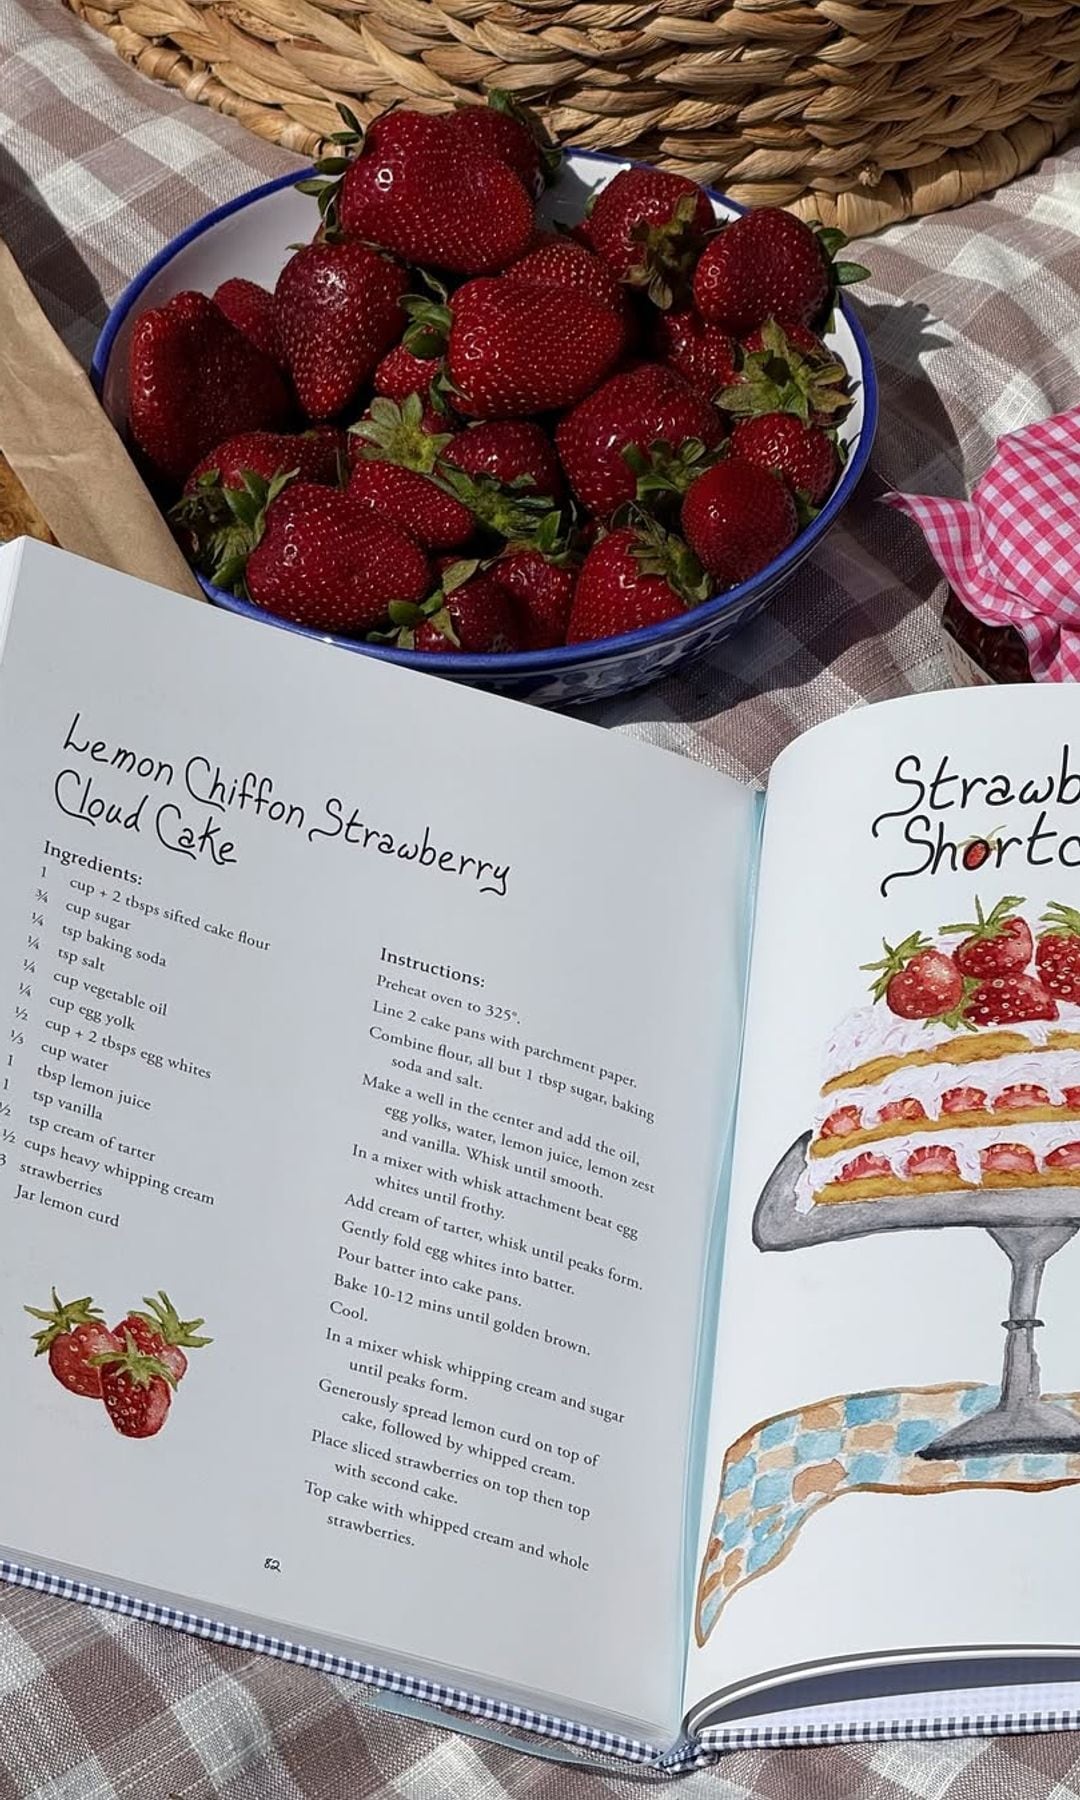 Lemon Chiffon Strawberry
Cloud Cake
Ingredients:
1 cup + 2 tbsps sifted cake flour
¾ cup sugar
¼ tsp baking soda
¼ tsp salt
¼ cup vegetable oil
¼ cup egg yolk
½ cup + 2 tbsps egg whites
⅓ cup water
1 tbsp lemon juice
1 tsp vanilla
½ tsp cream of tarter
½ cups heavy whipping cream
3 strawberries
Jar lemon curd
Instructions:
Preheat oven to 325°.
Line 2 cake pans with parchment paper.
Combine flour, all but 1 tbsp sugar, baking
soda and salt.
Make a well in the center and add the oil,
egg yolks, water, lemon juice, lemon zest
and vanilla. Whisk until smooth.
In a mixer with whisk attachment beat egg
whites until frothy.
Add cream of tarter, whisk until peaks form.
Gently fold egg whites into batter.
Pour batter into cake pans.
Bake 10-12 mins until golden brown.
Cool.
In a mixer whisk whipping cream and sugar
until peaks form.
Generously spread lemon curd on top of
cake, followed by whipped cream.
Place sliced strawberries on top then top
with second cake.
Top cake with whipped cream and whole
strawberries.
82
Strawb
Shortc